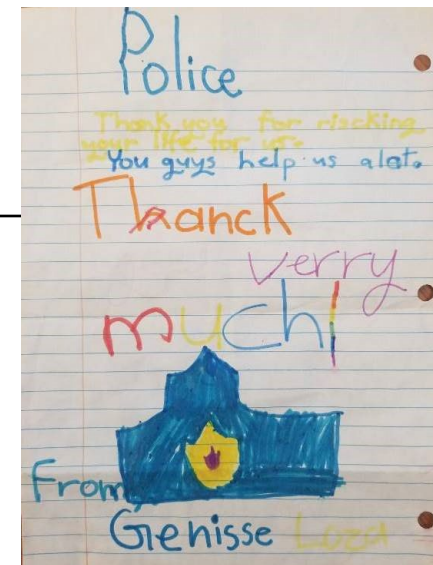 Police
Thank you for riscking
your life for us.
You guys help us alot.
Thanck
verry
much!
From,
Genisse Loza